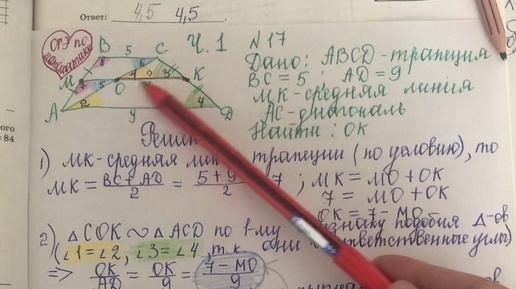 Ответ: 4,5 4,5
ОГЭ по математике
Ч. 1 N17
B 5 C
M O K
A 9 D
Дано: ABCD-трапеция
BC = 5; AD = 9
MK-средняя линия
AC-диагональ
Найти: OK
Решен
1) MK-средняя лин трапеции (по условию), то
MK = BC + AD / 2 = 5 + 9 / 2 7; MK = MO + OK
7 = MO + OK
OK = 7 - MO
2) △COK ∾ △ACD по 1-му знаку подобия △-ов
(∠1=∠2, ∠3=∠4, т.к. они соответственные углы)
=> OK / AD = OK / 9 = 7 - MO / 9
84